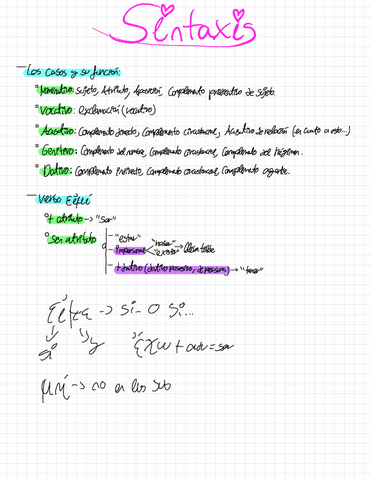 Sintaxis
Los Casos y su función:
Nominativo: Sujeto, Atributo, Aposición, Complemento predicativo de sujeto.
Vocativo: Exclamación (vocativo)
Acusativo: Complemento directo, Complemento circunstancial, Acusativo de relación (en cuanto a esto...)
Genitivo: Complemento del nombre, Complemento circunstancial, Complemento del régimen.
Dativo: Complemento indirecto, Complemento circunstancial, Complemento agente.
Verbo Eἰμί
+ atributo → "Ser"
Sin atributo
"estar"
impersonal "haber" "existir"
+ dativo (dativo posesivo, de persona) → "tener"
→ si- o si...
ἔχω + adv = ser
μή → no en los sub